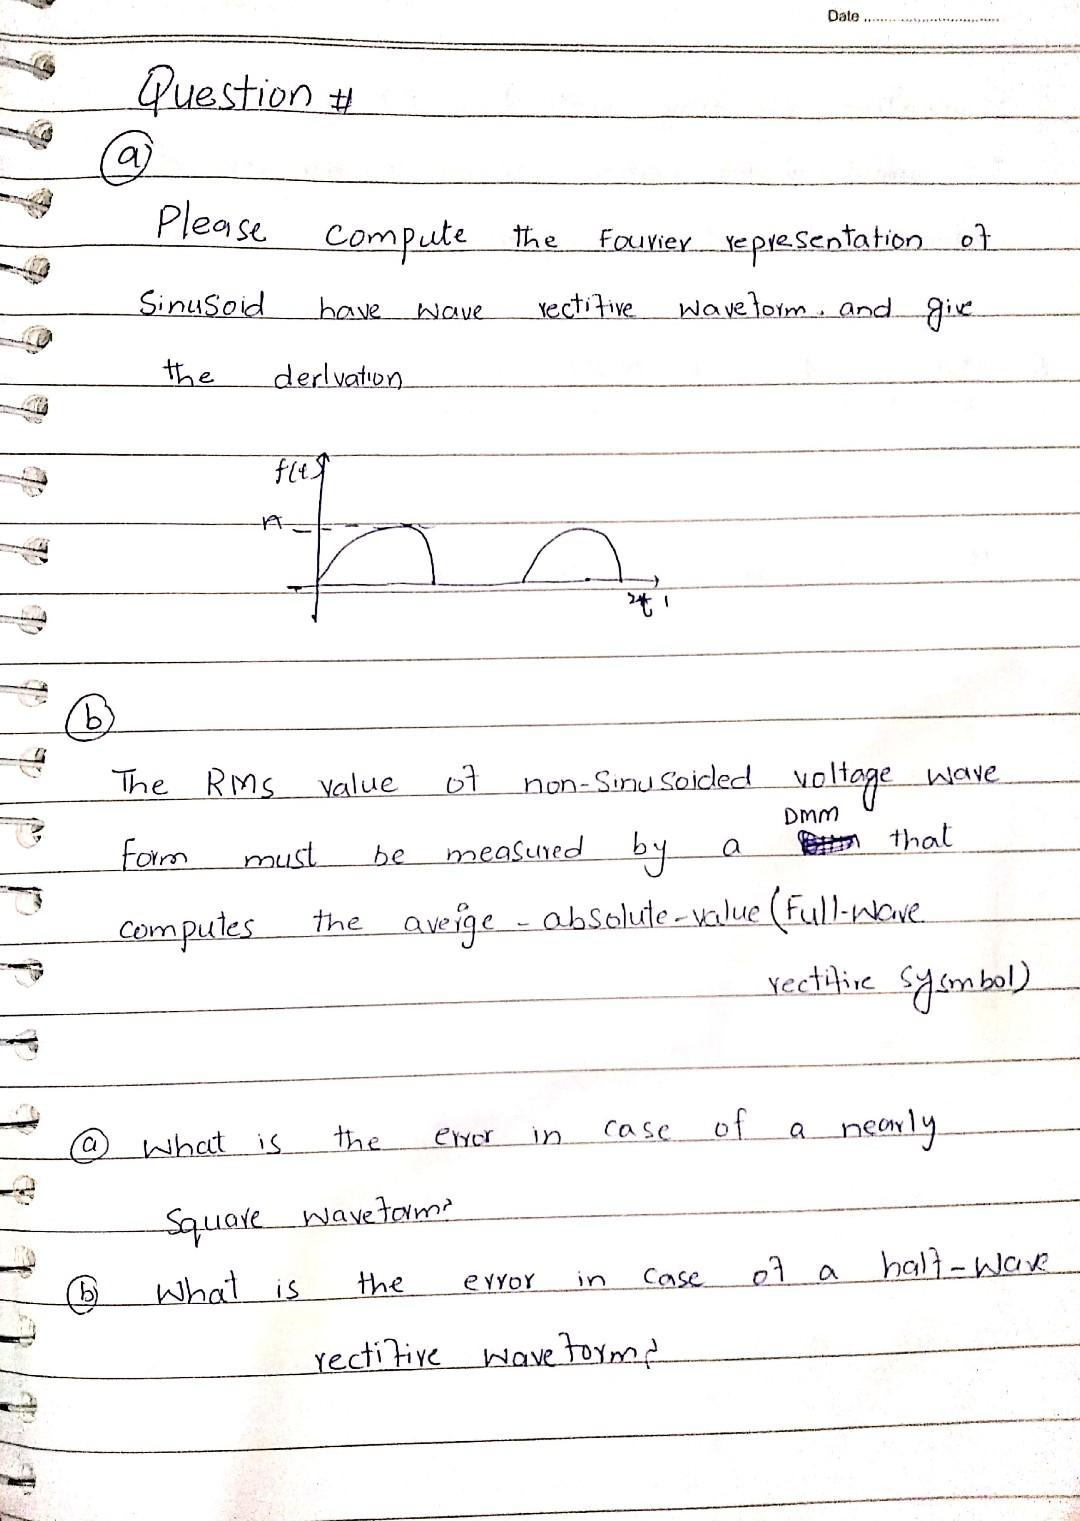 Date
Question #
a
Please compute the Fourier representation of
Sinusoid have wave rectifive waveform. and give
the derivation
f(t)
A
b
The RMS value of non-Sinusoided voltage wave
DMM
form must be measured by a that
computes the averge - absolute-value (Full-wave
rectifire sysmbol)
a what is the error in case of a nearly
Square waveform?
b What is the error in case of a half-wave
rectifive waveform?